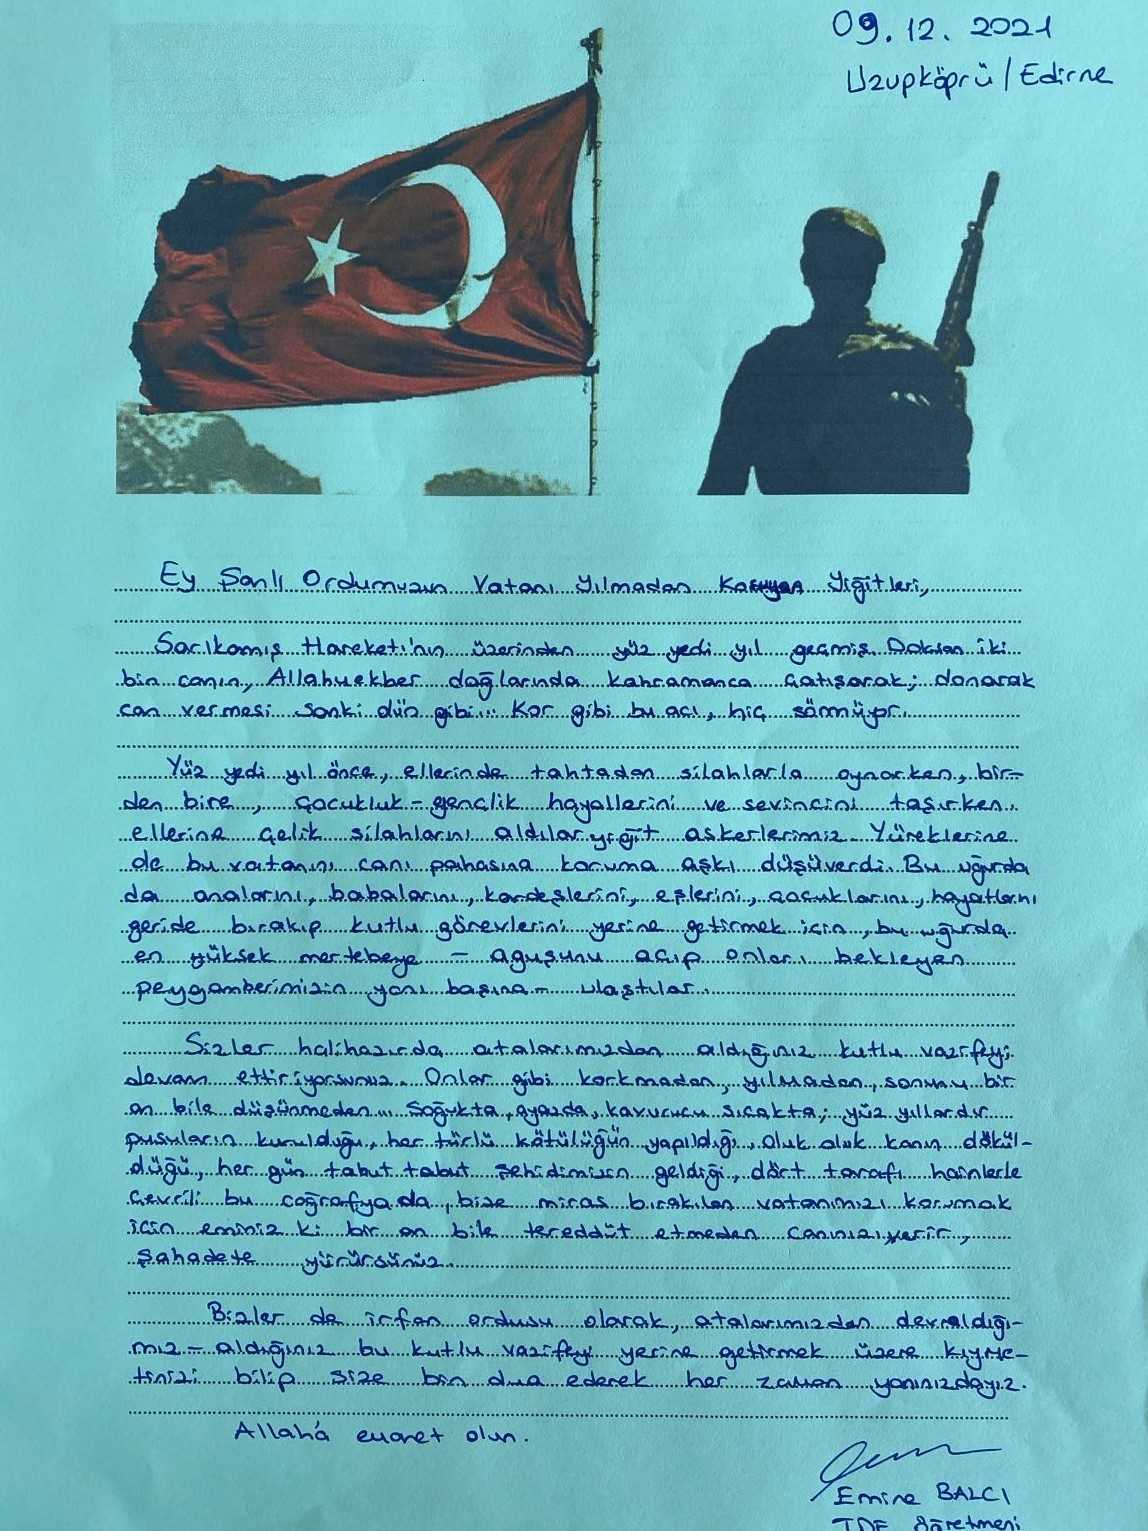 09.12.2021
Uzunköprü/Edirne
Ey Şanlı Ordumuzun Vatanı Yılmadan Koruyan Yiğitleri,
Sarıkamış Hareketi'nin üzerinden yüz yedi yıl geçmiş. Doksan iki
bin canın, Allahuekber dağlarında kahramanca çatışarak; donarak
can vermesi sanki dün gibi... Kor gibi bu acı, hiç sönmüyor.
Yüz yedi yıl önce, ellerinde tahtadan silahlarla oynarken, bir-
den bire, çocukluk-gençlik hayallerini ve sevincini taşırken
ellerine çelik silahlarını aldılar yiğit askerlerimiz. Yüreklerine
de bu vatanını canı pahasına koruma aşkı düşüverdi. Bu uğurda
da analarını, babalarını, kardeşlerini, eşlerini, çocuklarını, hayatlarını
geride bırakıp kutlu görevlerini yerine getirmek için, bu uğurda
en yüksek mertebeye - aguşunu açıp onları bekleyen
peygamberimizin yanı başına - ulaştılar.
Sizler halihazırda atalarımızdan aldığınız kutlu vazifeyi
devam ettiriyorsunuz. Onlar gibi korkmadan, yılmadan, sonunu bir
an bile düşünmeden... Soğukta, ayazda, kavurucu sıcakta; yüz yıllardır
pusuların kurulduğu, her türlü kötülüğün yapıldığı, oluk oluk kanın dökül-
düğü, her gün tabut tabut şehidimizin geldiği, dört tarafı hainlerle
çevrili bu coğrafyada, bize miras bırakılan vatanımızı korumak
için eminiz ki bir an bile tereddüt etmeden canınızı verir,
şahadete yürürsünüz.
Bizler de irfan ordusu olarak, atalarımızdan devraldığı-
mız - aldığınız bu kutlu vazifeyi yerine getirmek üzere kıyme-
tinizi bilip size bin dua ederek her zaman yanınızdayız.
Allah'a emanet olun.
Emine BALCI
TDE öğretmeni